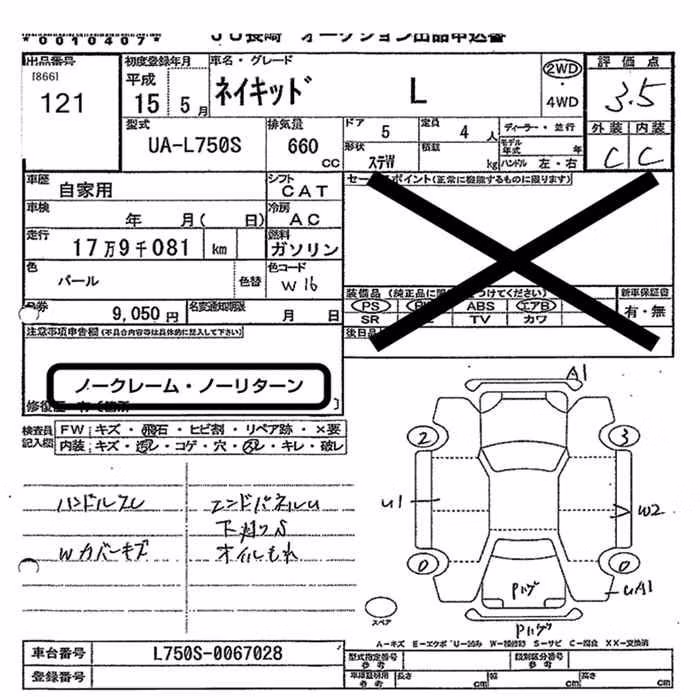 *0010407*
JU長崎 オークション出品申込書
出品番号 初度登録年月 車名・グレード 2WD・4WD 評価点
[866] 121 平成15 5月 ネイキッド L 3.5
型式 排気量 ドア 5 定員 4人 ディーラー・並行 外装 内装
UA-L750S 660CC 形状 ステW 積載 kg モデル年式 年 C C
ハンドル 左・右
車歴 自家用 シフト CAT セールスポイント(正常に機能するものに限ります)
車検 年 月( 日) 冷房 AC
走行 17万9千081 km 燃料 ガソリン
色 パール 色替 色コード W16
装備品 (純正品に つけてください) 新車保証書
PS ABS エアB 有・無
SR TV カワ
9,050円 名変通知期限 月 日
後日品
注意事項申告欄(不具合内容等は具体的に記入して下さい)
ノークレーム・ノーリターン
検査員記入欄 FW キズ・飛石・ヒビ割・リペア跡・×要
内装 キズ・汚レ・コゲ・穴・スレ・キレ・破レ
ハンドルスレ エンドパネルU
下廻りS
Wカバーキズ オイルもれ
A1
2 3
U1 W2
0 0
UA1
Pハゲ
Pハゲ
スペア
A-キズ E-エクボ U-凹み W-補修跡 S-サビ C-腐食 XX-交換済
車台番号 L750S-0067028 型式指定番号 参考 類別区分番号 参考
登録番号 車庫証明用 参考 長さ cm 幅 cm 高さ cm